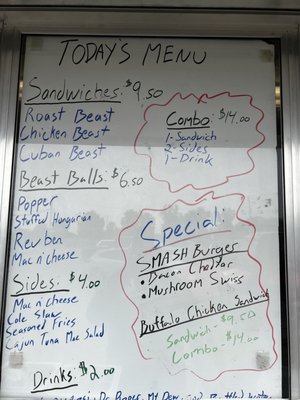 TODAY'S MENU
Sandwiches: $9.50
Roast Beast
Chicken Beast
Cuban Beast
Beast Balls: $6.50
Popper
Stuffed Hungarian
Reuben
Mac n' cheese
Sides: $4.00
Mac n' cheese
Cole Slaw
Seasoned Fries
Cajun Tuna Mac Salad
Drinks: $2.00
Combo: $14.00
1-Sandwich
2-Sides
1-Drink
Special:
SMASH Burger
• Bacon Cheddar
• Mushroom Swiss
Buffalo Chicken Sandwich
Sandwich-$9.50
Combo-$14.00